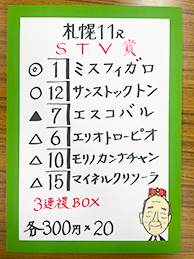 札幌11R
STV賞
◎ 1 ミスフィガロ
○ 12 サンストックトン
▲ 7 エスコバル
△ 6 エリオトローピオ
△ 10 モリノカンナチャン
△ 15 マイネルクリソーラ
3連複BOX
各300円×20